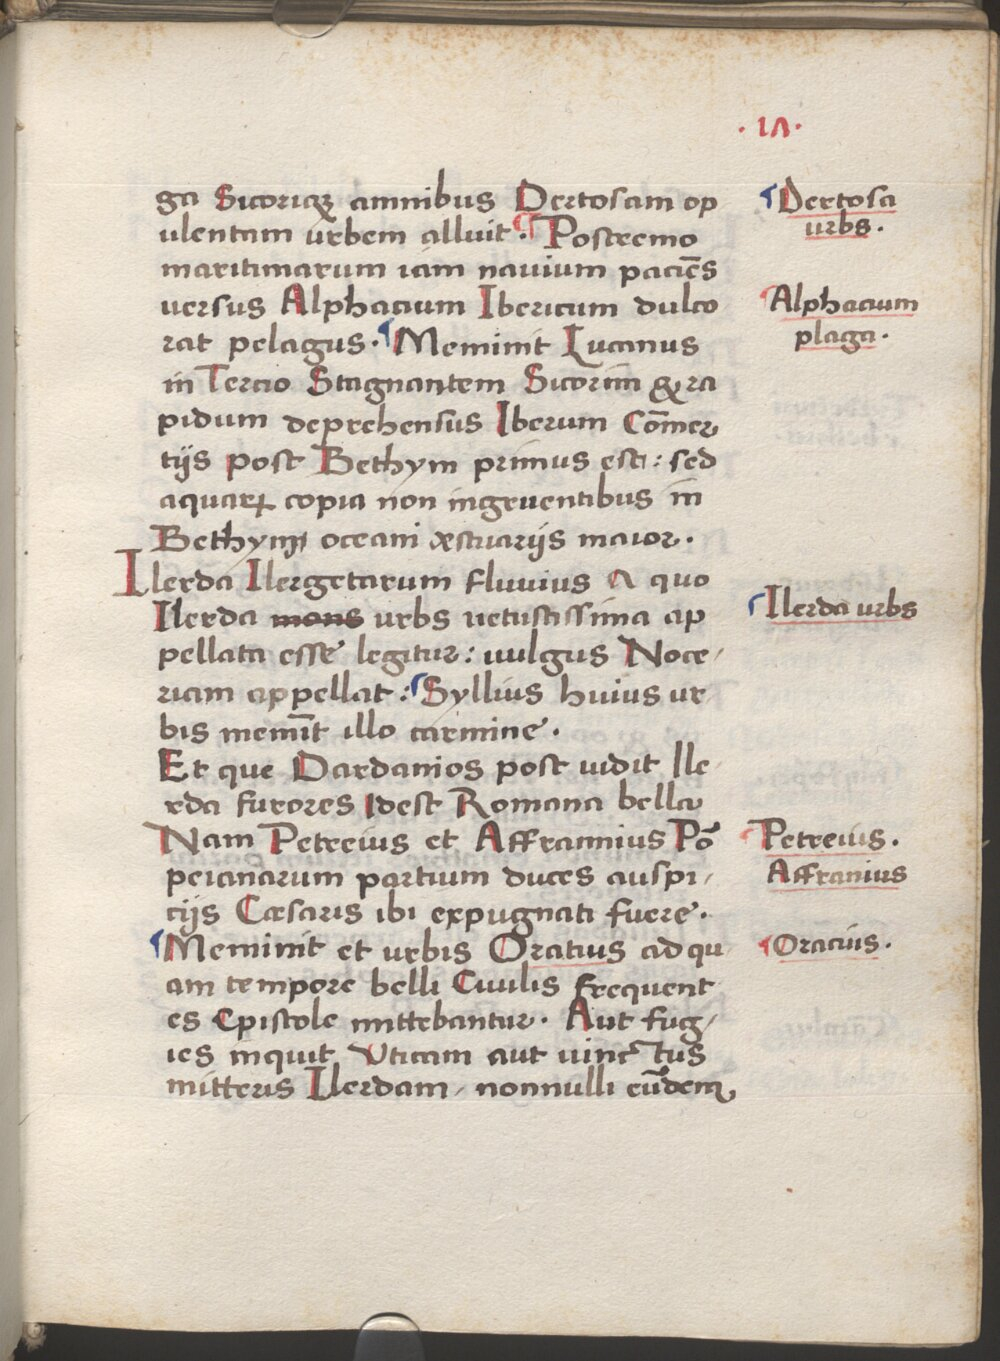 · 1Λ ·
ga Sicoriqꝫ amnibus Dertosam op
ulentam urbem alluit. ¶ Postremo
maritimarum iam nauium paciēs
uersus Alphacium Ibericum dulco
rat pelagus. ¶ Meminit Lucanus
in Tercio Stagnantem Sicorim & ra
pidum deprehensus Iberum Cōmer
tijs post Bethym primus est: sed
aquarꝝ copia non ingruentibus in
Bethym oceani æstuariis maior.
Ilerda Ilergetarum fluuius A quo
Ilerda mons urbs uetustissima ap
pellata esse legitur: uulgus Noce-
riam appellat: ¶ Syllius huius ur
bis memīt illo carmine.
Et que Dardanios post uidit Ile-
rda furores Idest Romana bella
Nam Petreius et Affrannius Pō
peianarum partium duces auspi-
cijs Cæsaris ibi expugnati fuere.
¶ Meminit et urbis Oratius ad qu
am tempore belli Ciuilis frequent
es Epistole mittebantur. Aut fug-
ies inquit Vticam aut uinctus
mitteris Ilerdam, nonnulli eūdem
¶ Dertosa
urbs.
¶ Alphacium
plaga.
¶ Ilerda urbs
¶ Petreius.
Affranius
¶ Oracius.